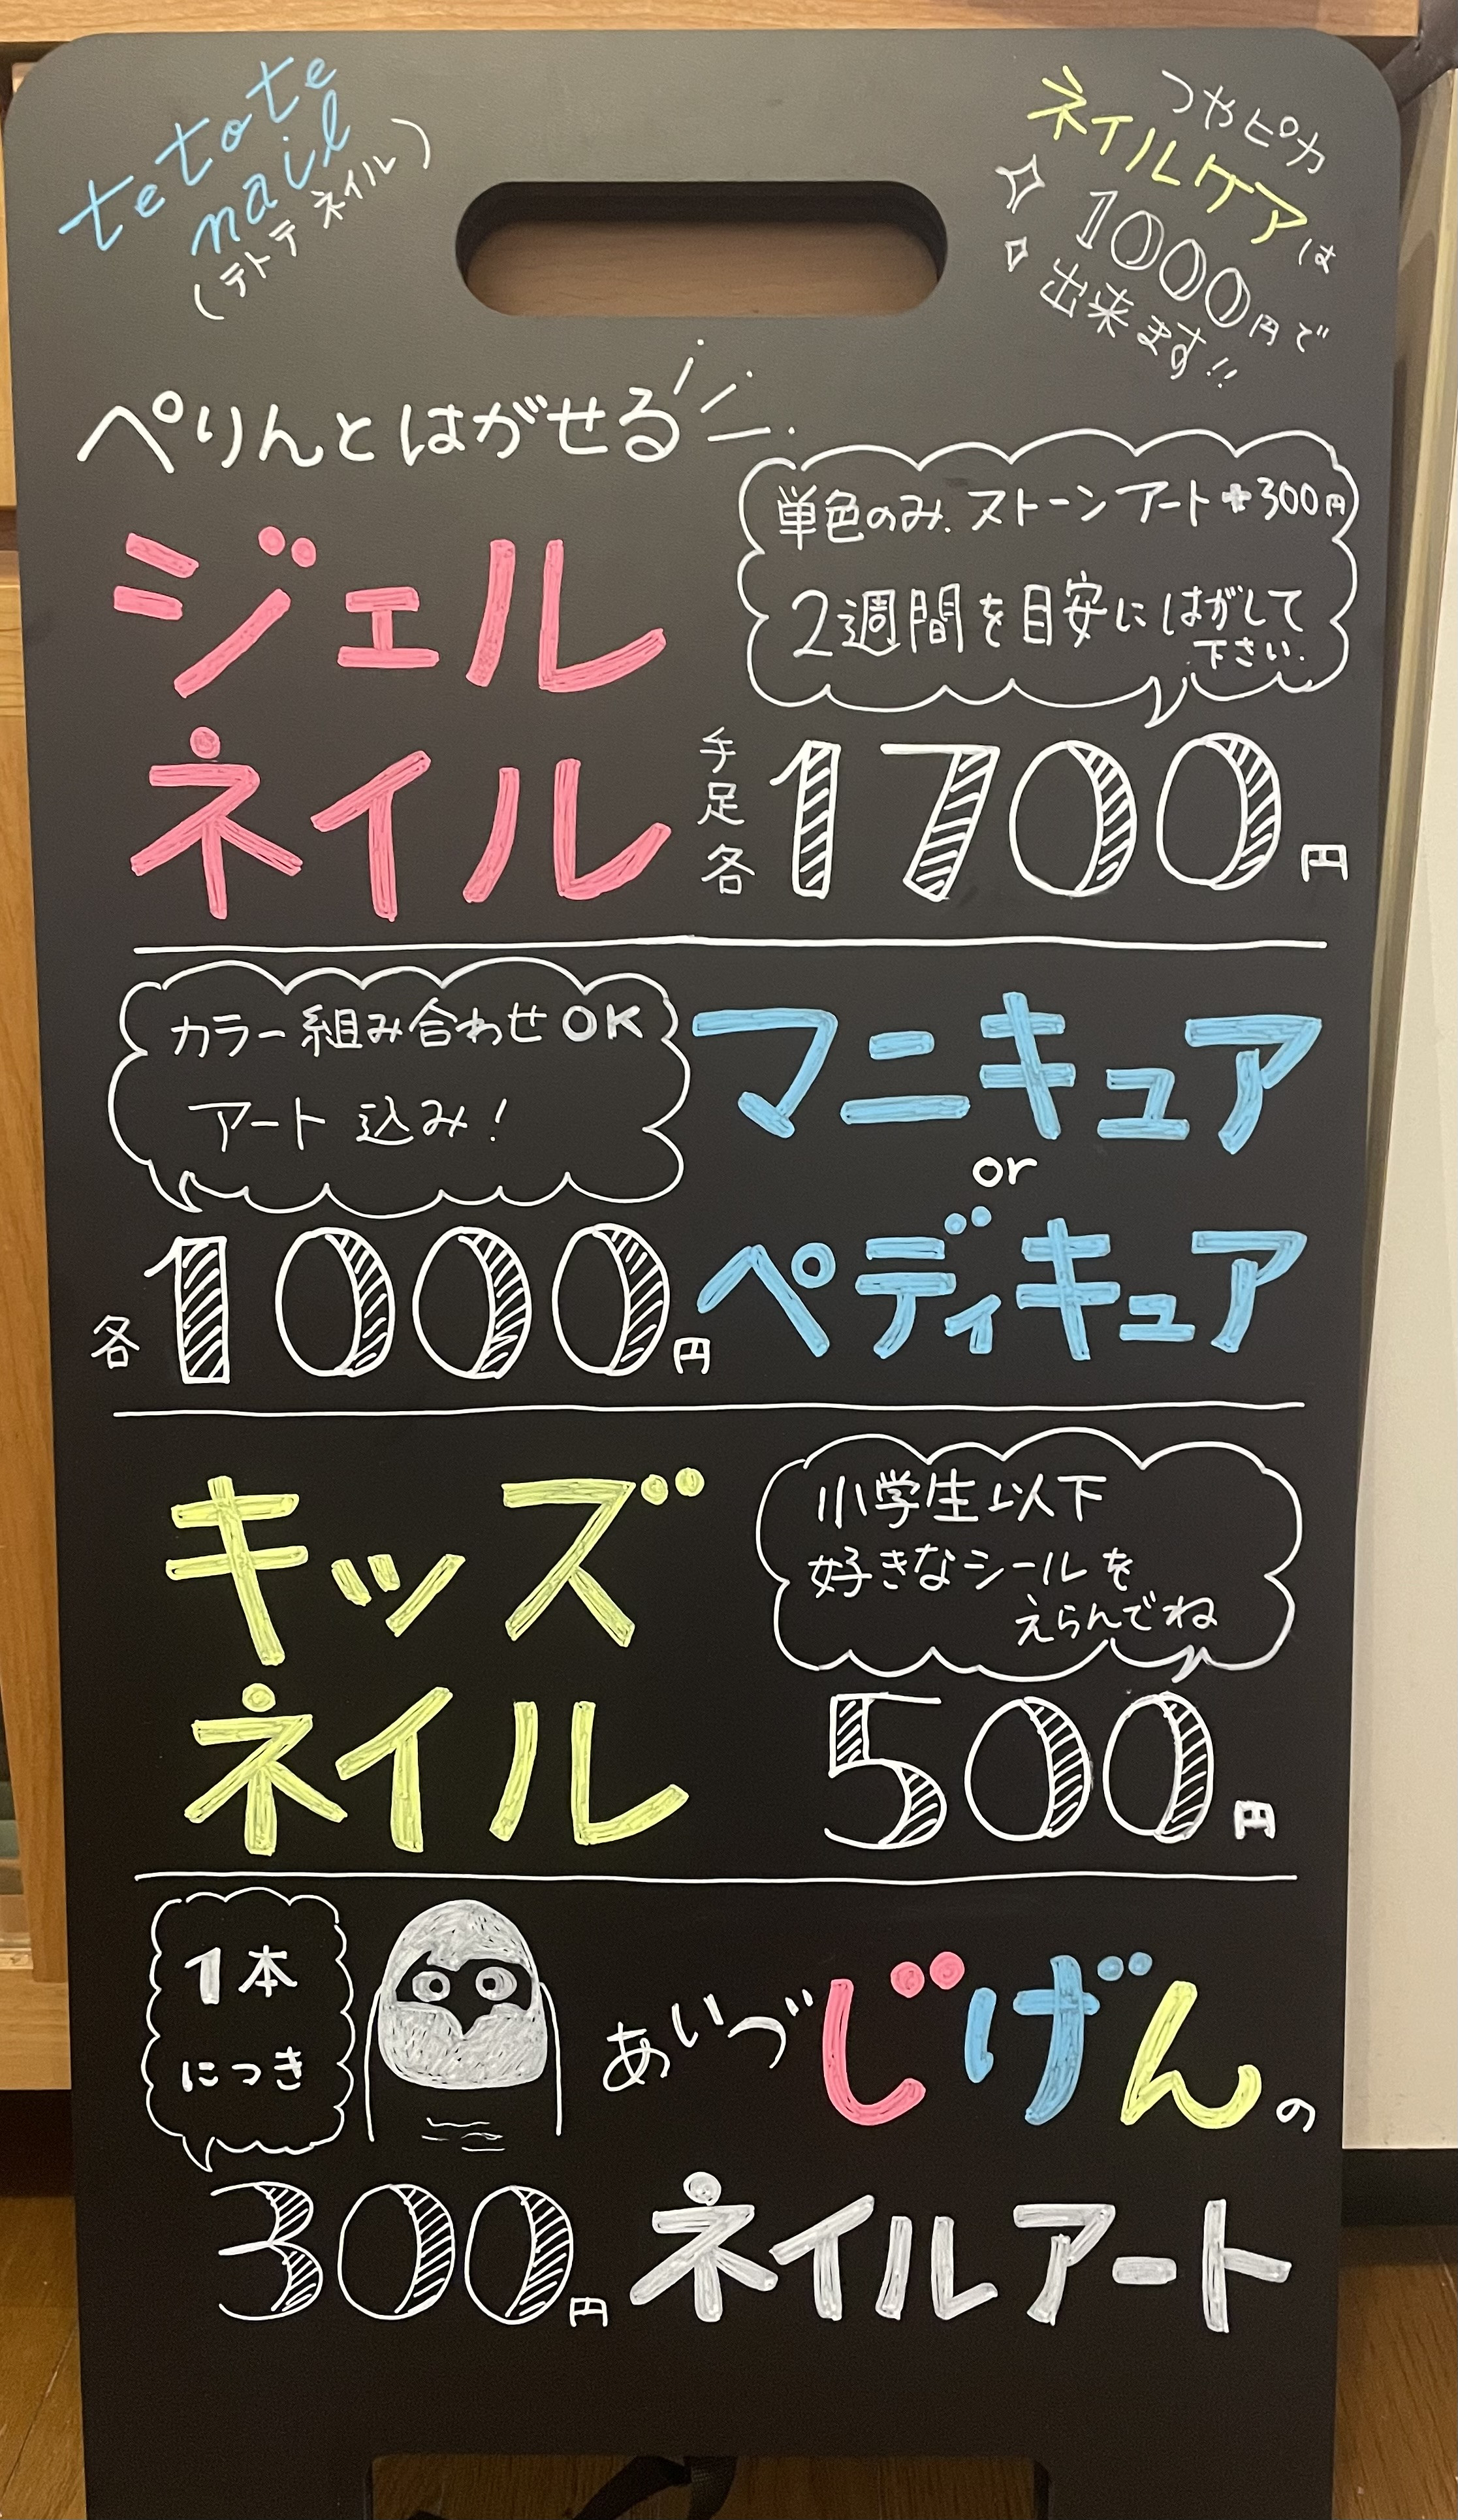 tetote
nail
(テトテネイル)
つやピカ
ネイルケアは
1000円で
出来ます!!
ぺりんとはがせる
ジェル
ネイル
単色のみ.ストーンアート+300円
2週間を目安にはがして
下さい.
手足各1700円
カラー組み合わせOK
アート込み!
マニキュア
or
ペディキュア
各1000円
キッズ
ネイル
小学生以下
好きなシールを
えらんでね
500円
1本
につき
あいづじげんの
300円ネイルアート